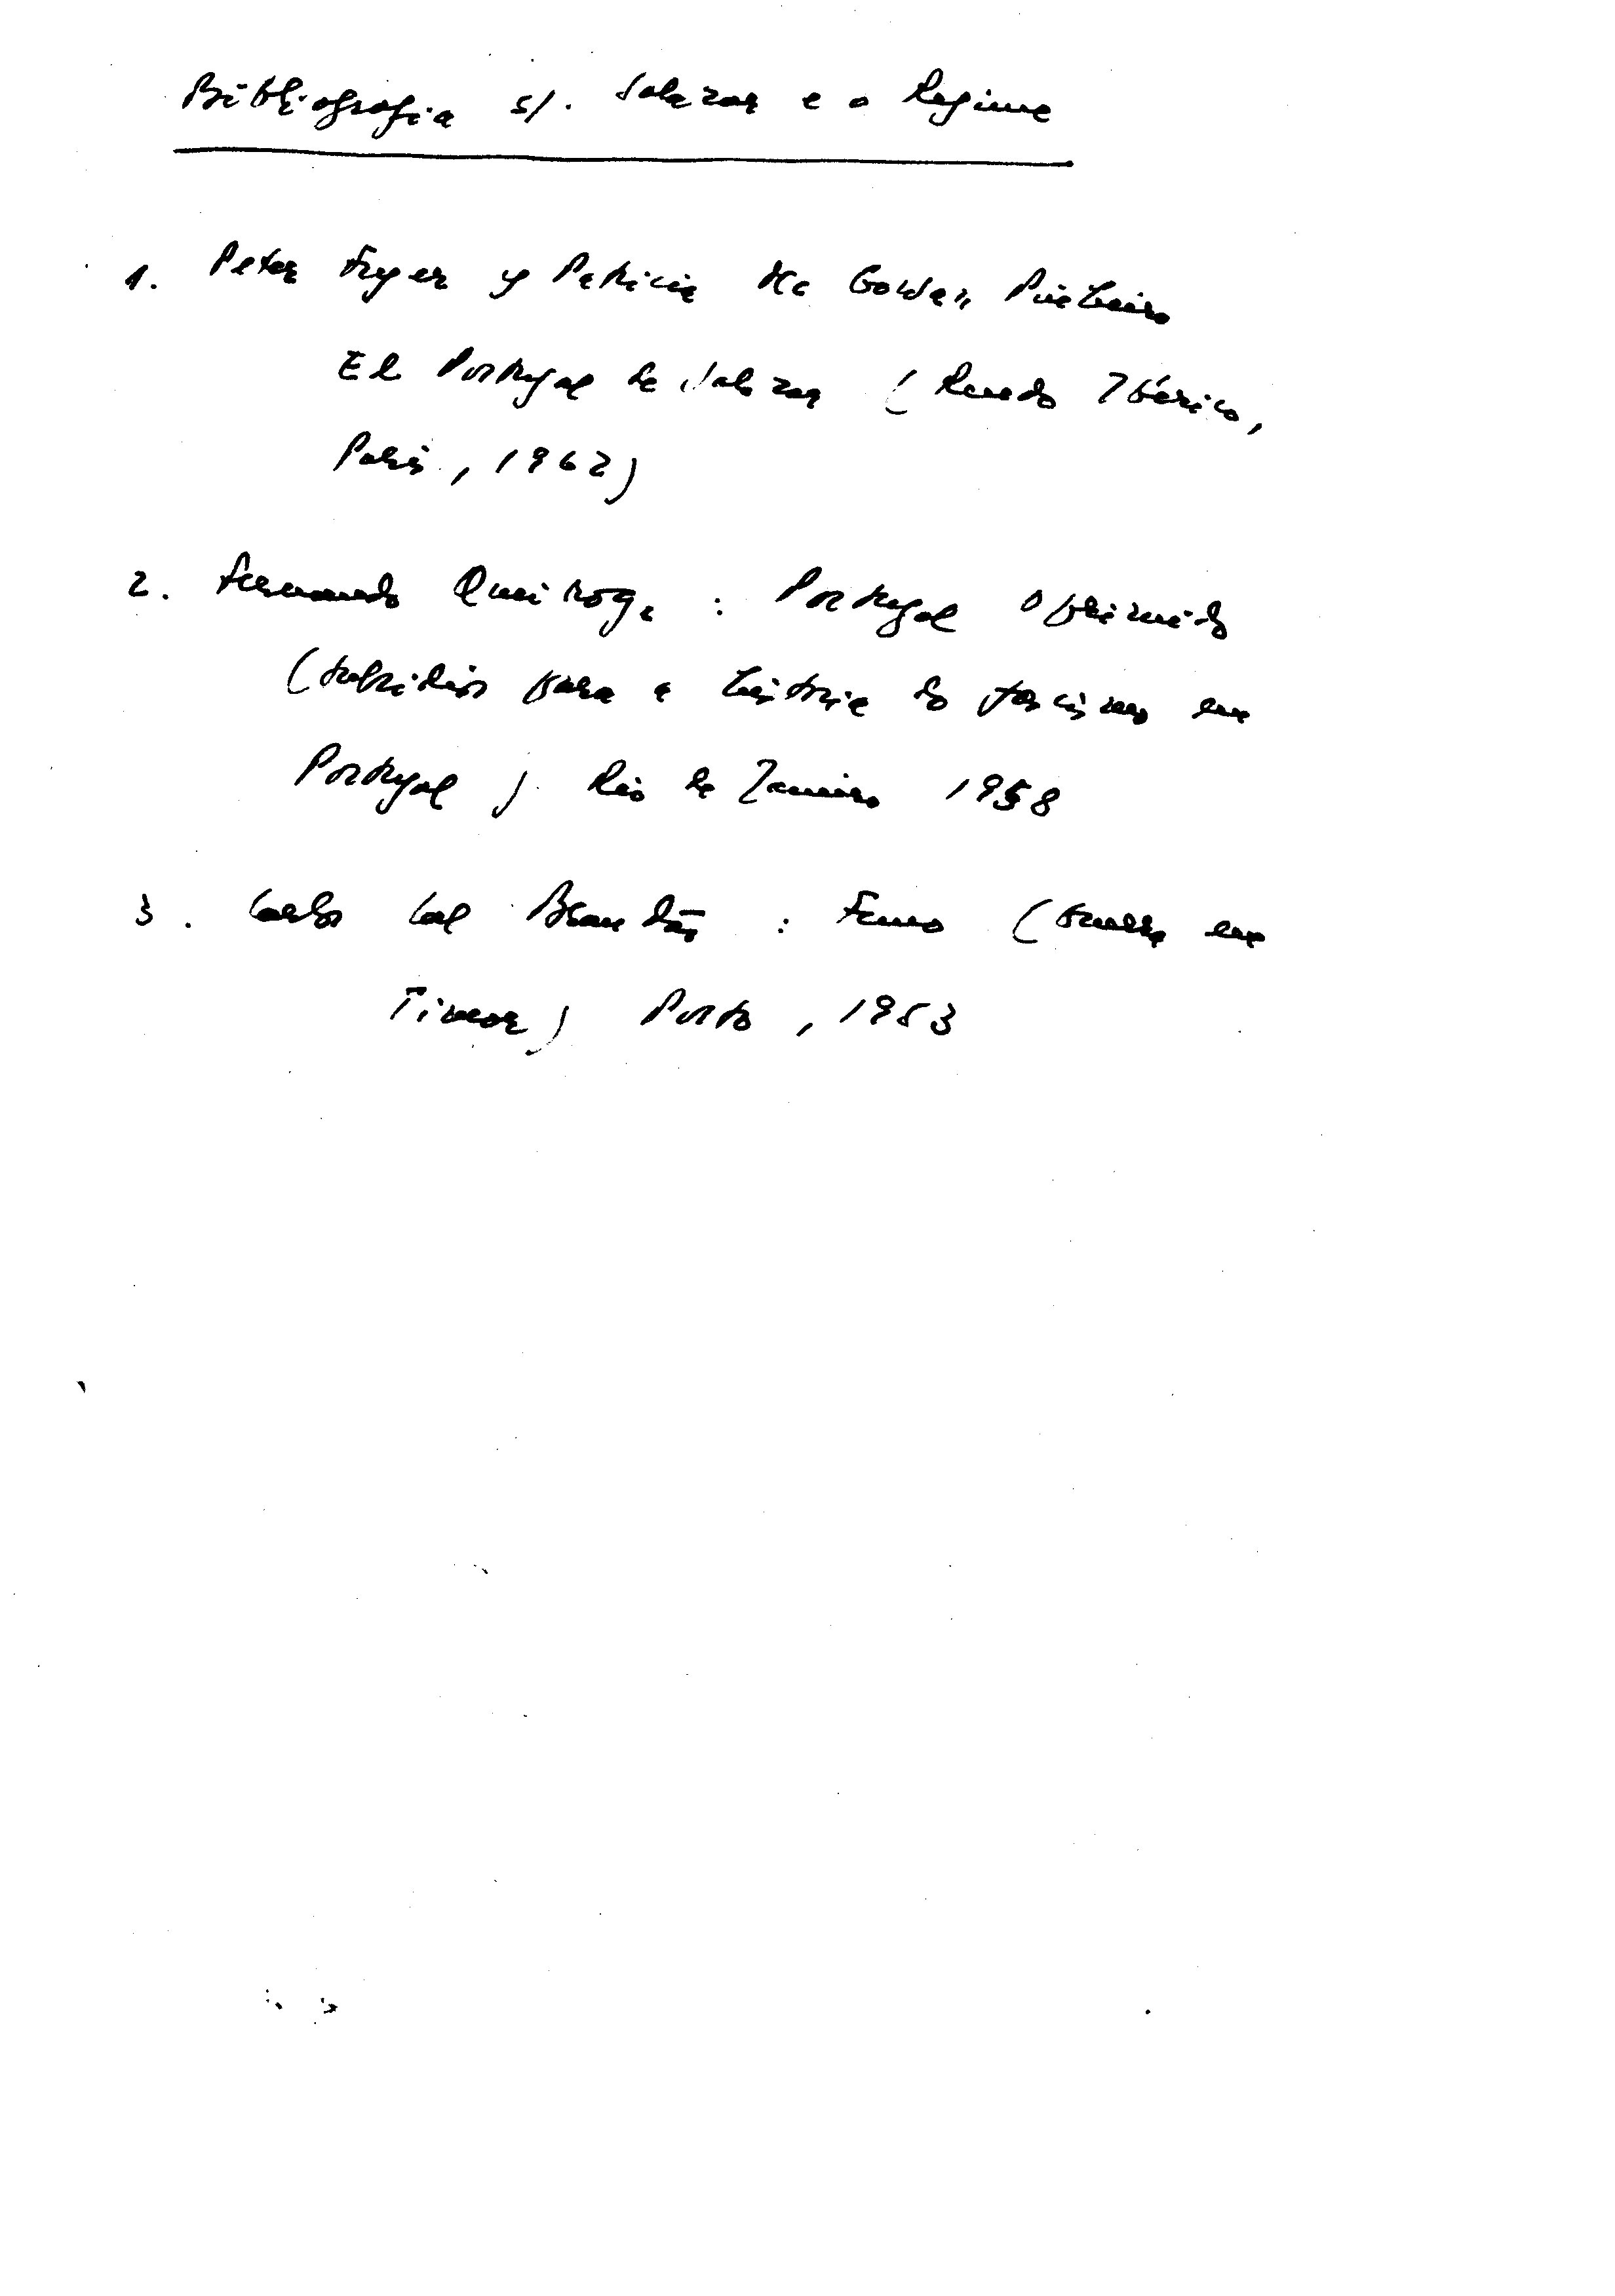 Bibliografia s/. Salazar e o Regime
1. Peter Fryer y Patricia Mc Gowan Pinheiro
El Portugal de Salazar (Ruedo Ibérico,
Paris, 1962)
2. Fernando Queiroga : Portugal oprimido
(subsidios para a história do fascismo em
Portugal) Rio de Janeiro 1958
3. Carlos Cal Brandão : Funo (Guerra em
Timor) Porto, 1953